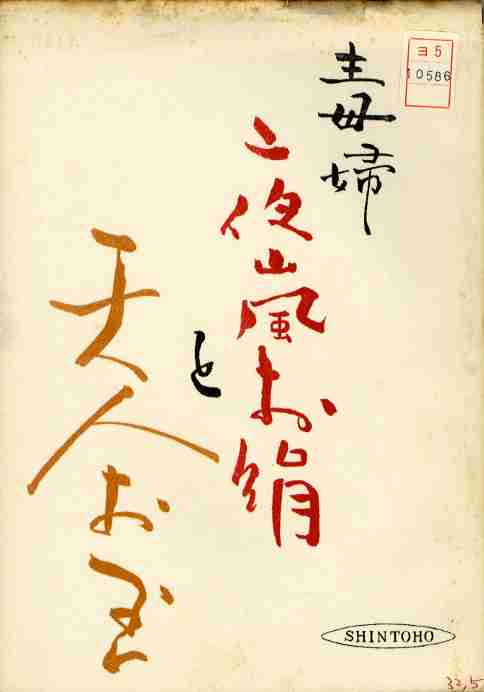 毒婦
夜嵐お絹
と
天人お玉
ヨ5
10586
SHINTOHO
32,5